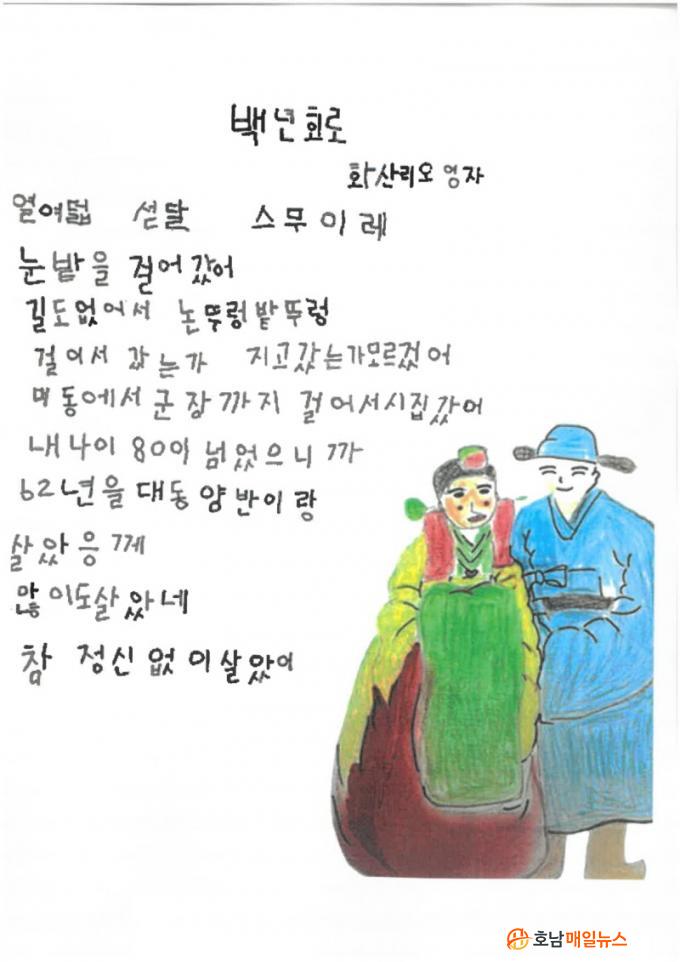 백년회로
화산리오 영자
열여덟 섣달 스무이레
눈밭을 걸어갔어
길도없어서 논뚜렁밭뚜렁
걸어서 갔는가 지고갔는가모르겄어
며동에서 군장까지 걸어서시집갔어
내나이 80이 넘었으니까
62년을 대동양반이랑
살았응께
많이도살았네
참 정신없이살았어
호남매일뉴스